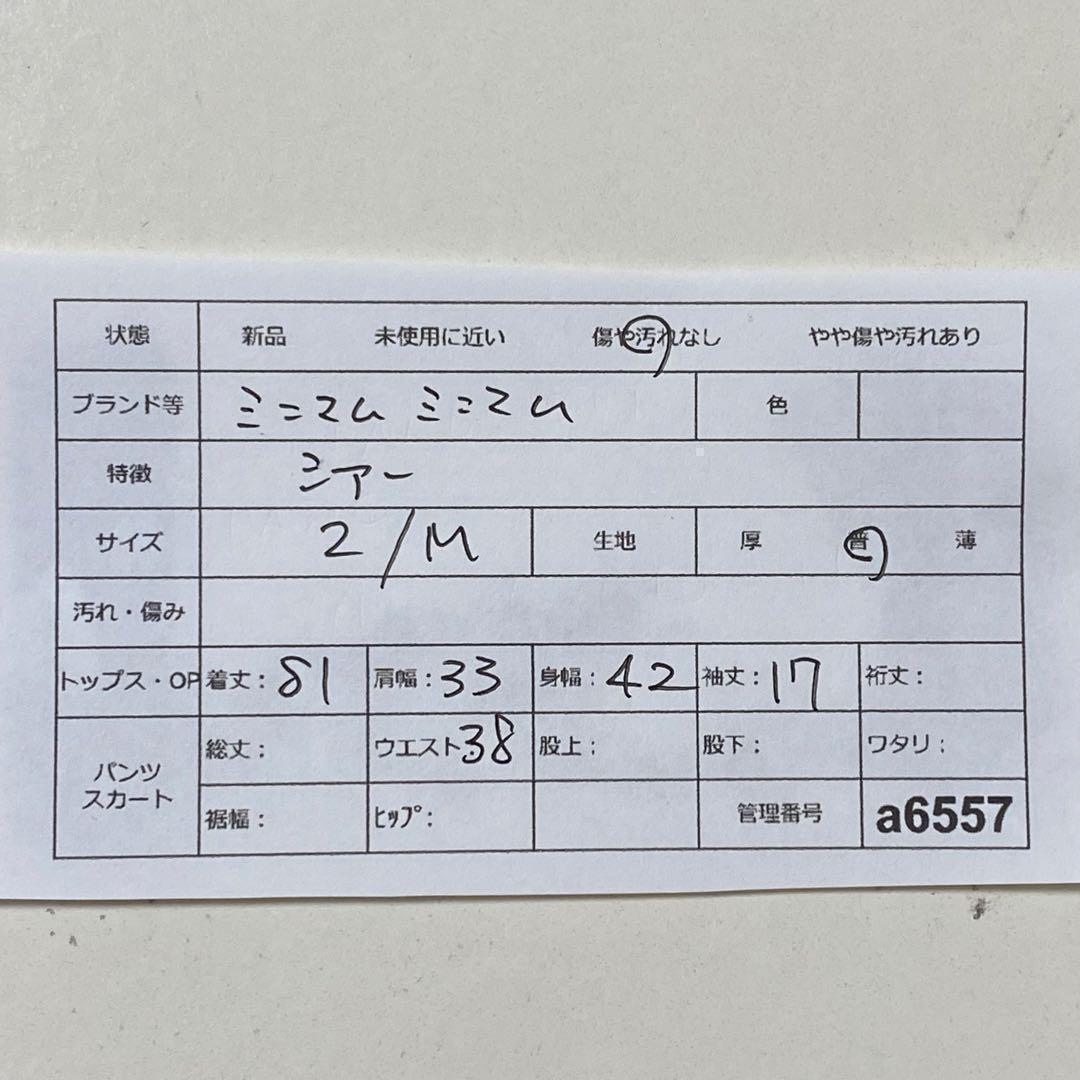 状態 新品 未使用に近い 傷や汚れなし やや傷や汚れあり
ブランド等 ミニマム ミニマム 色
特徴 シアー
サイズ 2/M 生地 厚 普 薄
汚れ・傷み
トップス・OP 着丈：81 肩幅：33 身幅：42 袖丈：17 裄丈：
パンツ スカート 総丈： ウエスト38 股上： 股下： ワタリ：
裾幅： ﾋｯﾌﾟ： 管理番号 a6557